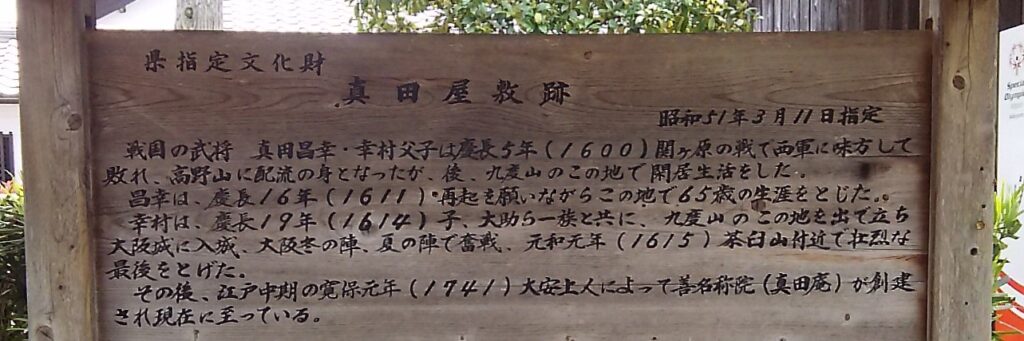 県指定文化財
真田屋敷跡
昭和51年3月11日指定
戦国の武将 真田昌幸・幸村父子は慶長5年(1600)関ヶ原の戦で西軍に味方して
敗れ、高野山に配流の身となったが、後、九度山のこの地で閑居生活をした。
昌幸は、慶長16年(1611)・再起を願いながらこの地で65歳の生涯をとじた。
幸村は、慶長19年(1614)子、大助ら一族と共に、九度山のこの地を出て立ち
大阪城に入城、大阪冬の陣、夏の陣で奮戦、元和元年(1615)茶臼山付近で壮烈な
最後をとげた。
その後、江戸中期の寛保元年(1741)大安上人によって善名称院(真田庵)が創建
され現在に至っている。